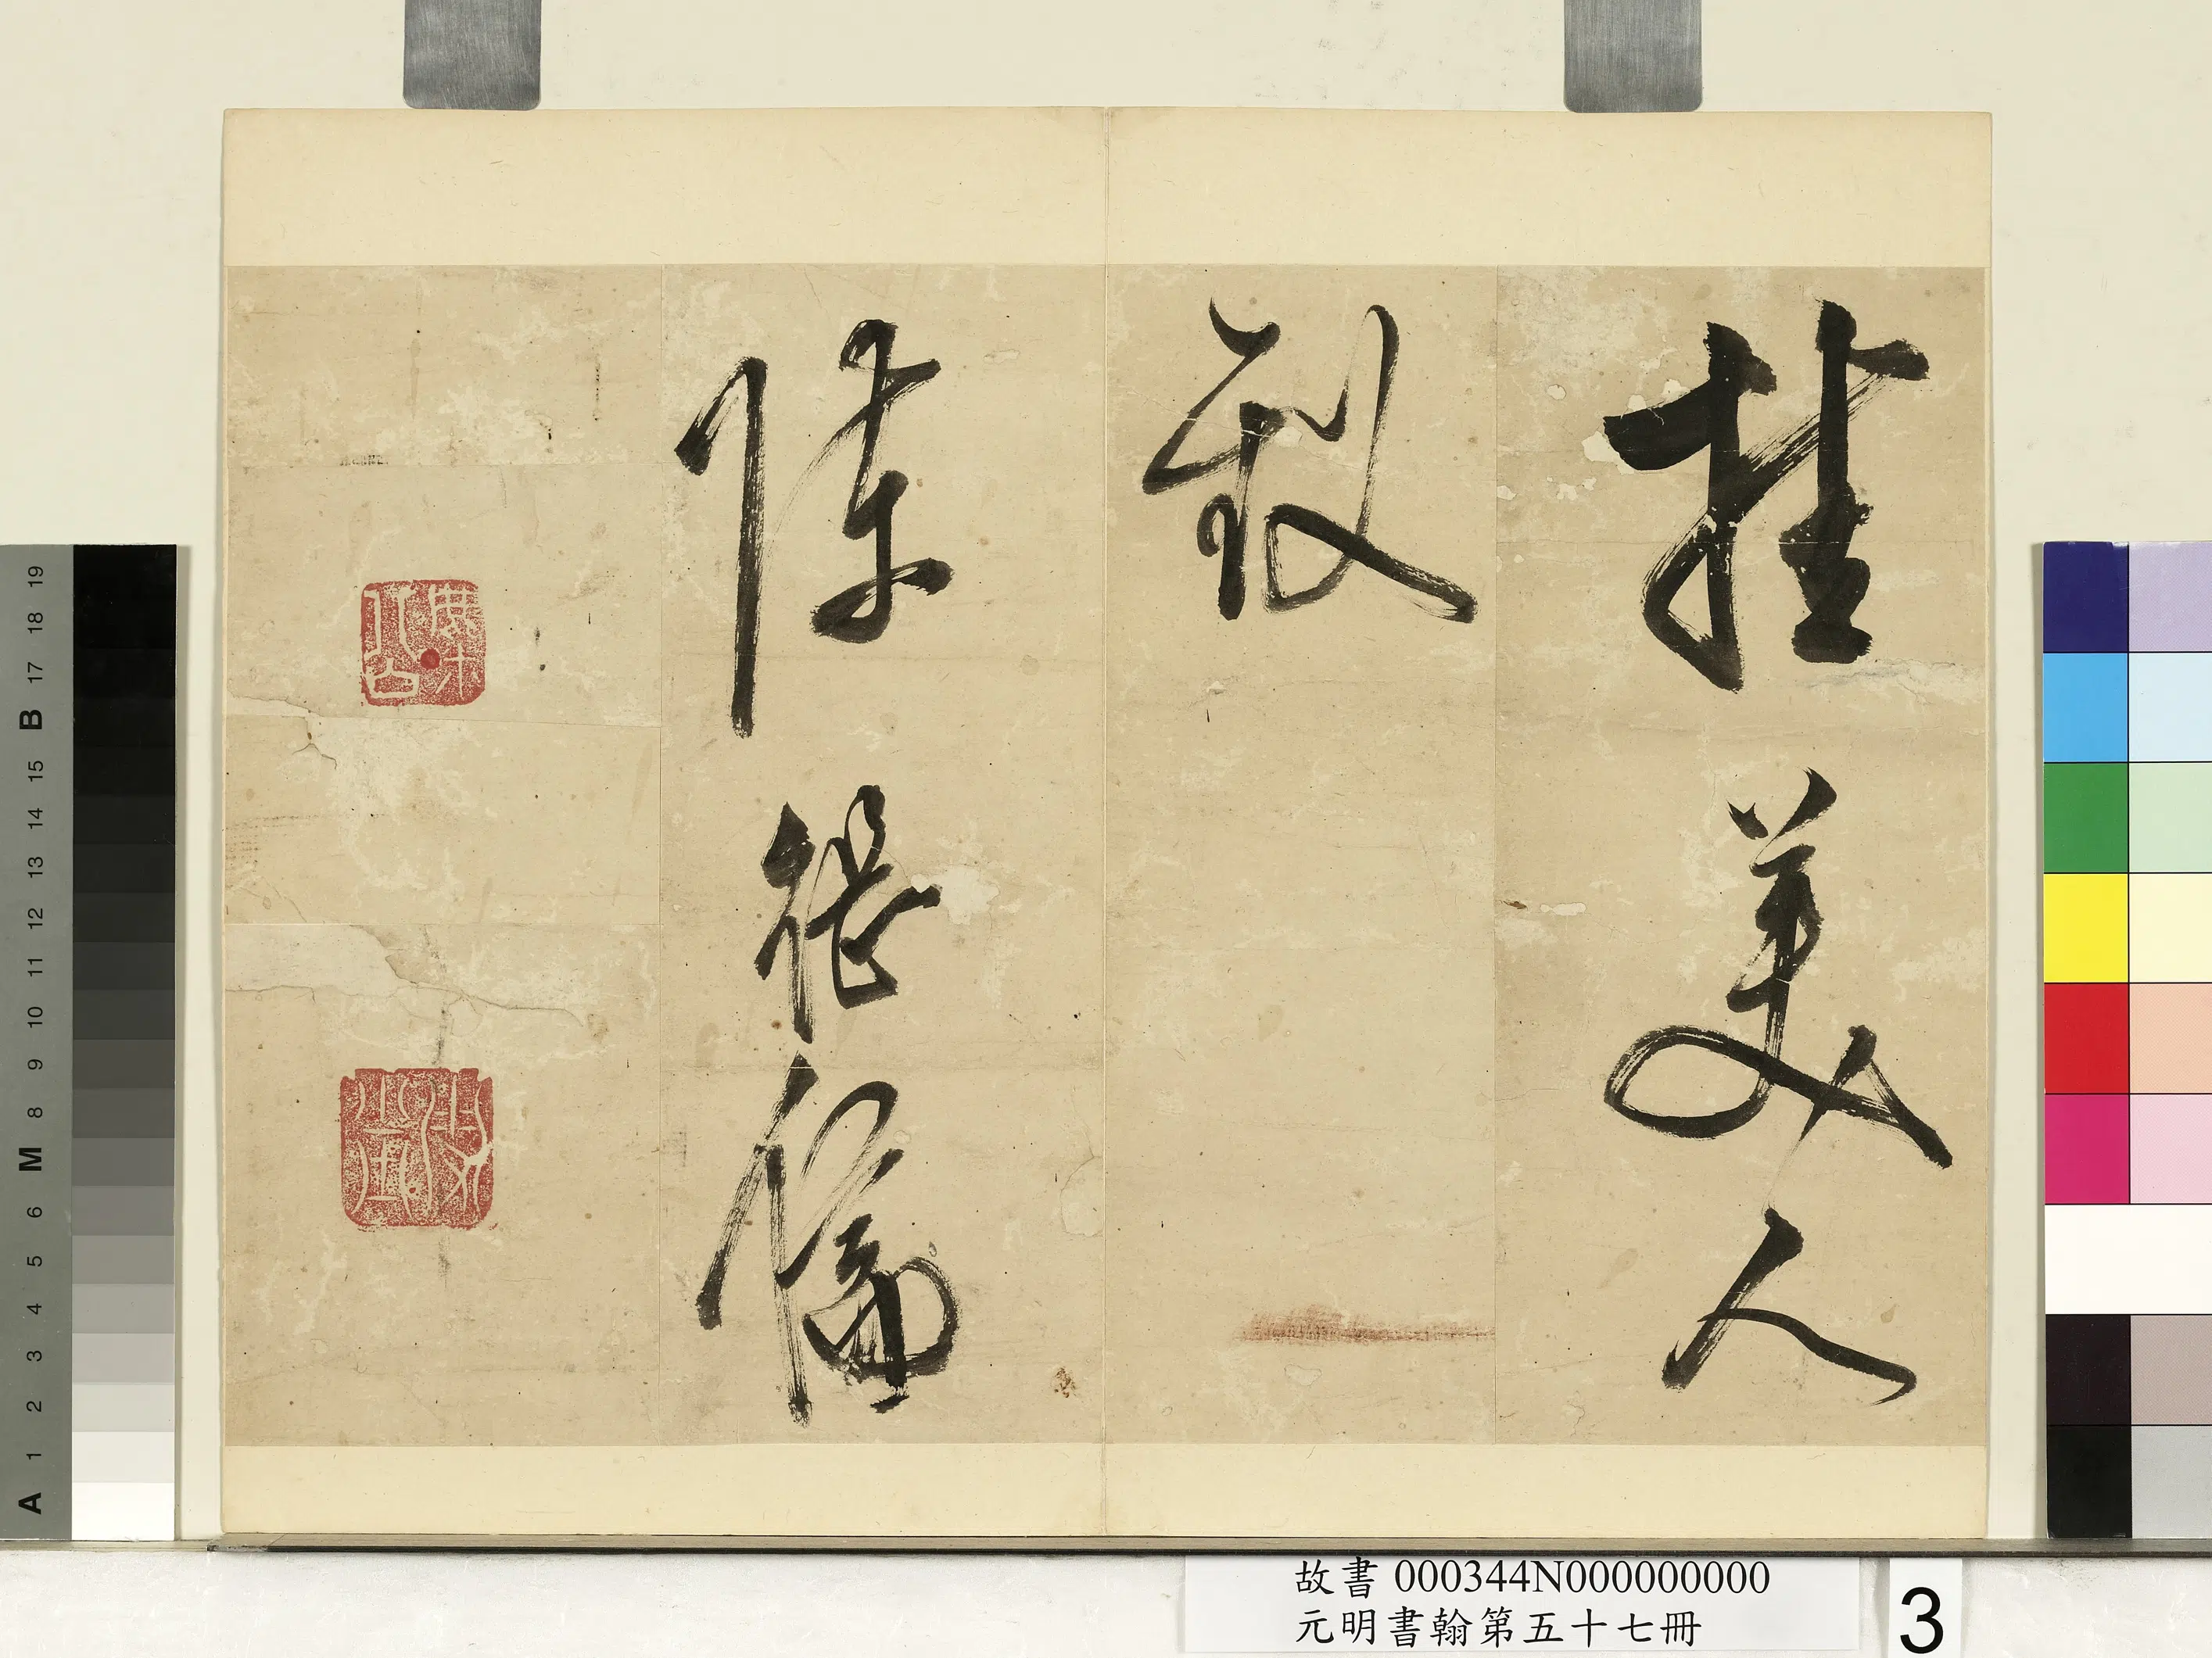 挂美人
釵
陳繼儒
A 1 2 3 4 5 6 M 8 9 10 11 12 13 14 15 B 17 18 19
故書 000344N000000000
元明書翰第五十七冊
3